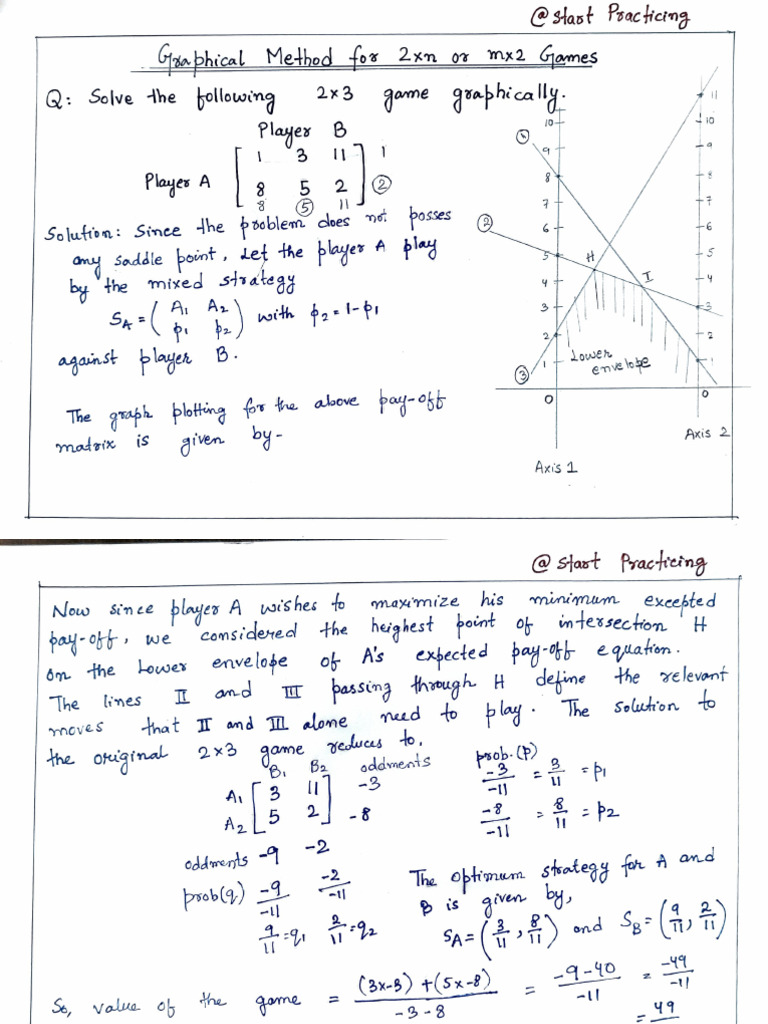 @ Start Practicing
Graphical Method for 2xn or mx2 Games
Q: Solve the following 2x3 game graphically.
Player B
1 3 11 1
Player A
8 5 2 ②
8 ⑤ 11
Solution: Since the problem does not posses
any saddle point, Let the player A play
by the mixed strategy
SA = ( A1 A2
p1 p2 ) with p2 = 1-p1
against player B.
The graph plotting for the above pay-off
matrix is given by-
①
②
③
10
9
8
7
6
5
4
3
2
1
0
11
10
9
8
7
6
5
4
3
2
1
0
H
I
Lower
envelope
Axis 1
Axis 2
@ Start Practicing
Now since player A wishes to maximize his minimum excepted
pay-off, we considered the heighest point of intersection H
on the Lower envelope of A's expected pay-off equation.
The lines II and III passing through H define the relevant
moves that II and III alone need to play. The solution to
the original 2x3 game reduces to,
B1 B2 oddments
A1 [ 3 11 ] -3
A2 [ 5 2 ] -8
oddments -9 -2
prob(q) -9/-11 -2/-11
9/11 = q1 2/11 = q2
prob.(p)
-3/-11 = 3/11 = p1
-8/-11 = 8/11 = p2
The optimum strategy for A and
B is given by,
SA = (3/11, 8/11) and SB = (9/11, 2/11)
So, value of the game = (3x-3) + (5x-8) / -3-8 = -9-40 / -11 = -49/-11
= 49